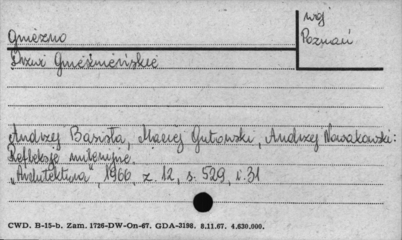 Gniezno
woj
Poznań
Drzwi Gnieźnieńskie
Andrzej Basista, Maciej Gutowski, Andrzej Nowakowski:
Refleksje
"Architektura", 1966, z. 12, s. 529, i. 31
CWD. B-15-b. Zam. 1726-DW-On-67. GDA-3198. 8.11.67. 4.630.000.